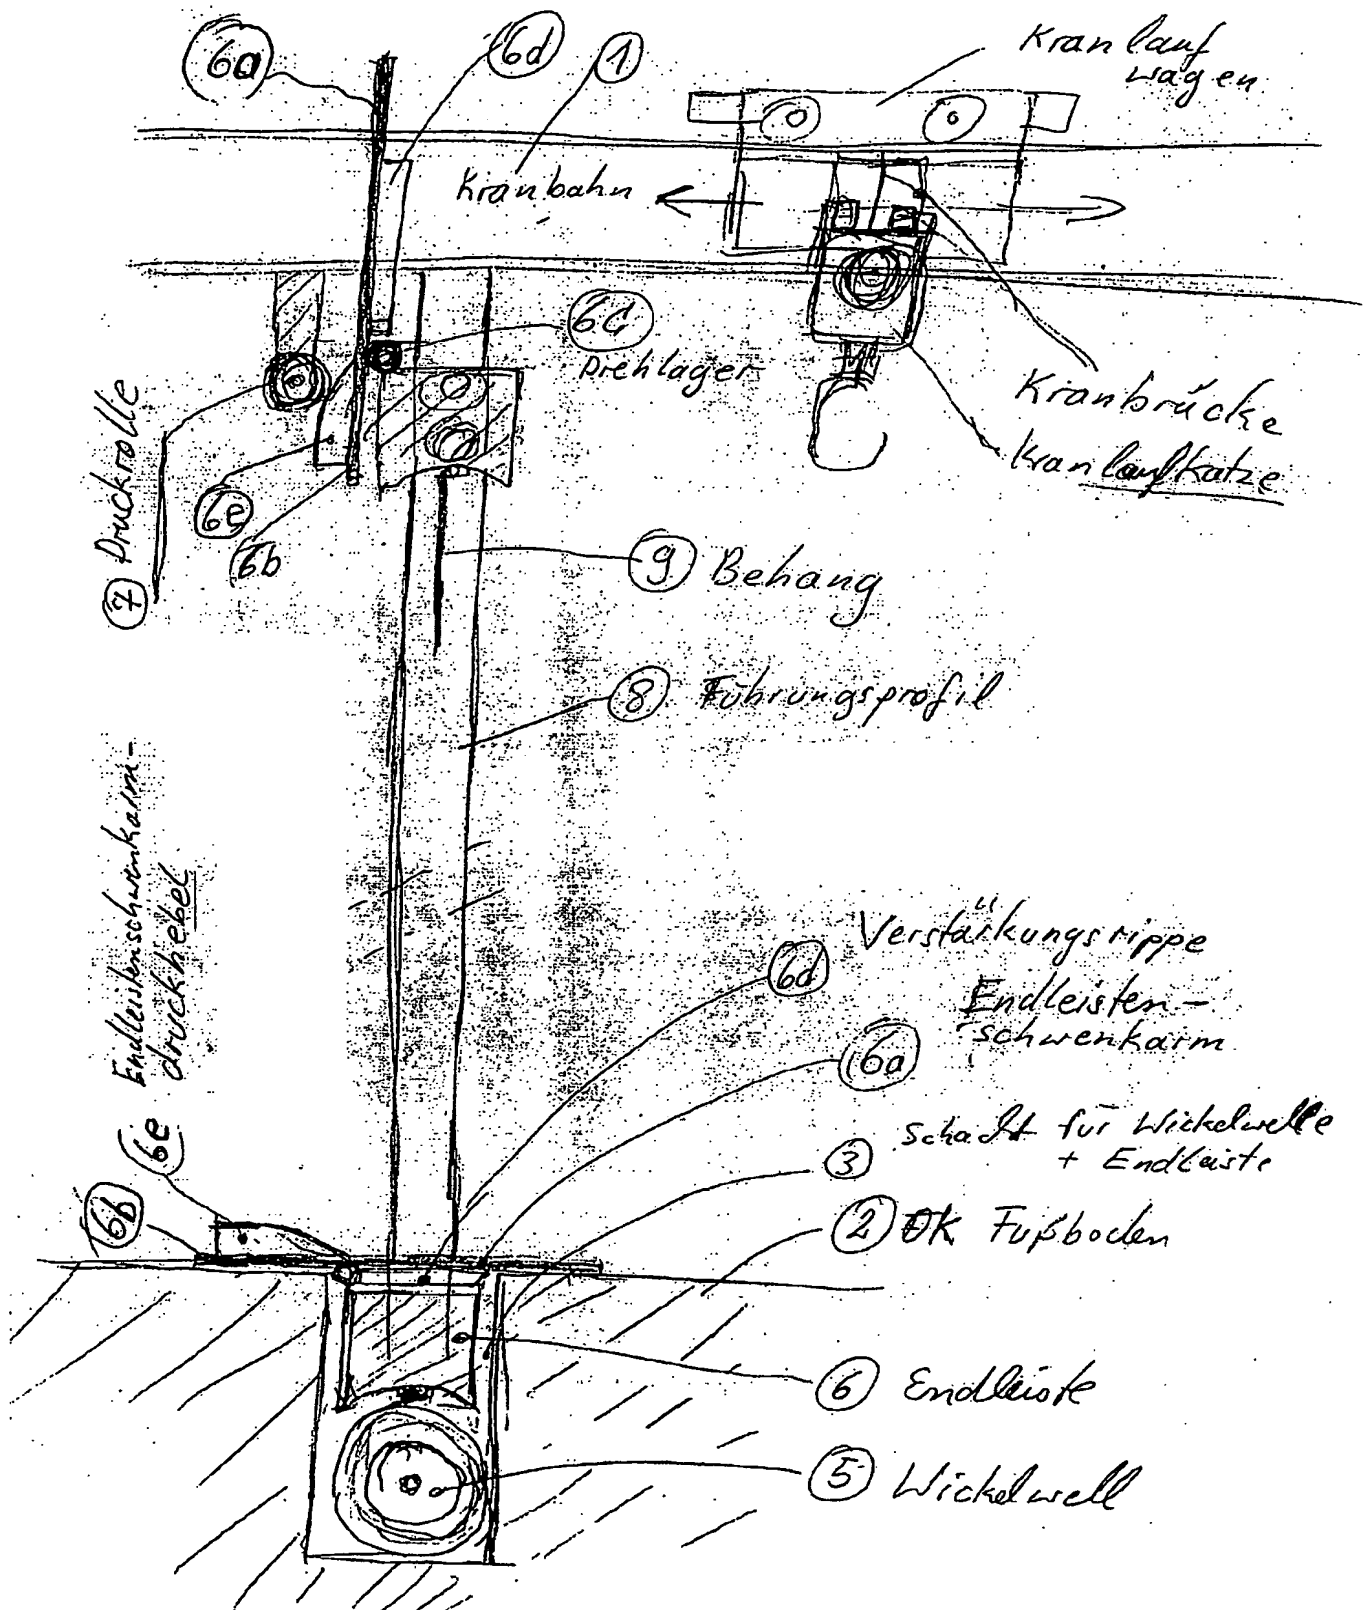 6a
6d
1
Kranlauf
wagen
Kranbahn
6c
Drehlager
Kranbrücke
Kranlaufkatze
7 Druckrolle
6e
6b
9 Behang
8 Führungsprofil
Endleistenschwenkarm-
druckhebel
6e
6b
6d
Verstärkungsrippe
Endleisten-
schwenkarm
6a
3
Schacht für Wickelwelle
+ Endleiste
2 OK Fußboden
6 Endleiste
5 Wickelwell